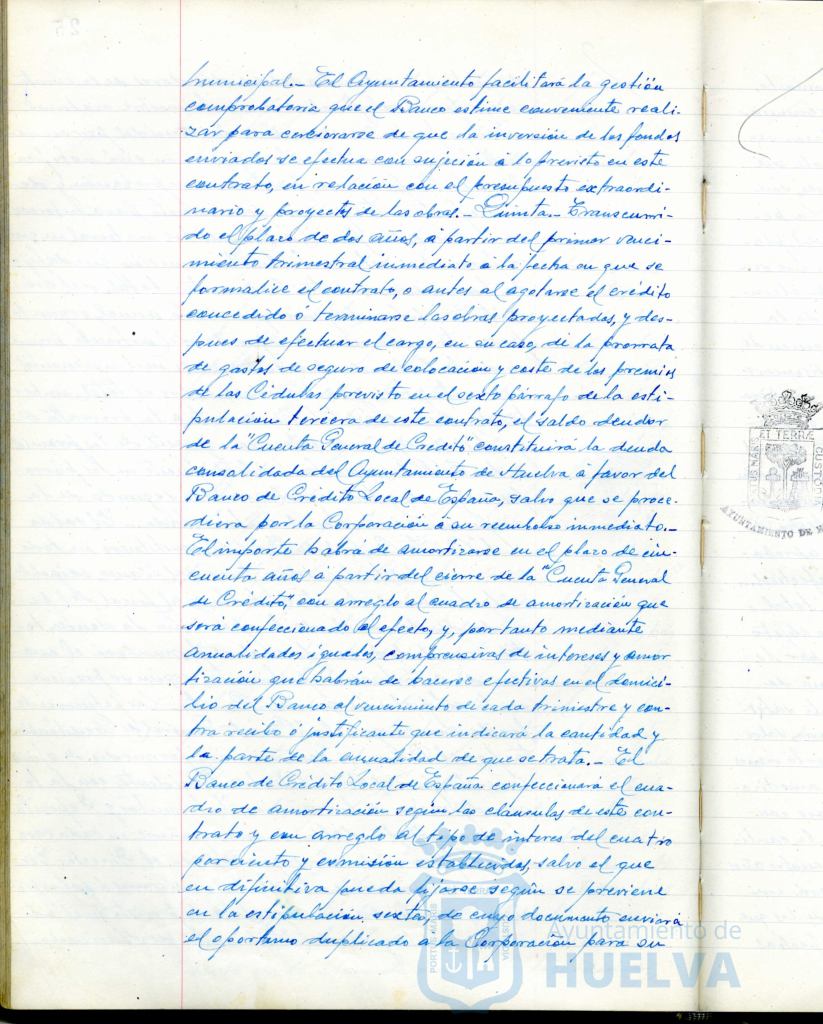 municipal.- El Ayuntamiento facilitará la gestión
comprobatoria que el Banco estime conveniente reali-
zar para cerciorarse de que la inversión de los fondos
enviados se efectua con sujeción á lo previsto en este
contrato, en relación con el presupuesto extraordi-
nario y proyectos de las obras.- Quinta.- Transcurri-
do el plazo de dos años, á partir del primer venci-
miento trimestral inmediato á la fecha en que se
formalice el contrato, o antes al agotarse el crédito
concedido ó terminarse las obras proyectadas, y des-
pues de efectuar el cargo, en su caso, de la prorrata
de gastos de seguro de colocación y coste de los premios
de las Cédulas previsto en el sexto párrafo de la esti-
pulación tercera de este contrato, el saldo deudor
de la "Cuenta General de Credito" constituirá la deuda
consolidada del Ayuntamiento de Huelva á favor del
Banco de Crédito Local de España, salvo que se proce-
diera por la Corporación á su reembolso inmediato.-
El importe habrá de amortizarse en el plazo de cin-
cuenta años á partir del cierre de la "Cuenta General
de Crédito", con arreglo al cuadro de amortización que
será confeccionado al efecto, y, por tanto mediante
anualidades iguales, comprensivas de intereses y amor
tización que habrán de hacerse efectivas en el domici-
lio del Banco al vencimiento de cada trimestre y con-
tra recibo ó justificante que indicará la cantidad y
la parte de la anualidad de que se trata.- El
Banco de Crédito Local de España confeccionará el cua-
dro de amortización según las clausulas de este con-
trato y con arreglo al tipo de interes del cuatro
por ciento y comisión establecidos, salvo el que
en difinitiva pueda fijarse según se previene
en la estipulación sexta, de cuyo documento enviará
el oportuno duplicado á la Corporación para su
Ayuntamiento de
HUELVA
ET TERRÆ
CUSTODIA
AYUNTAMIENTO DE